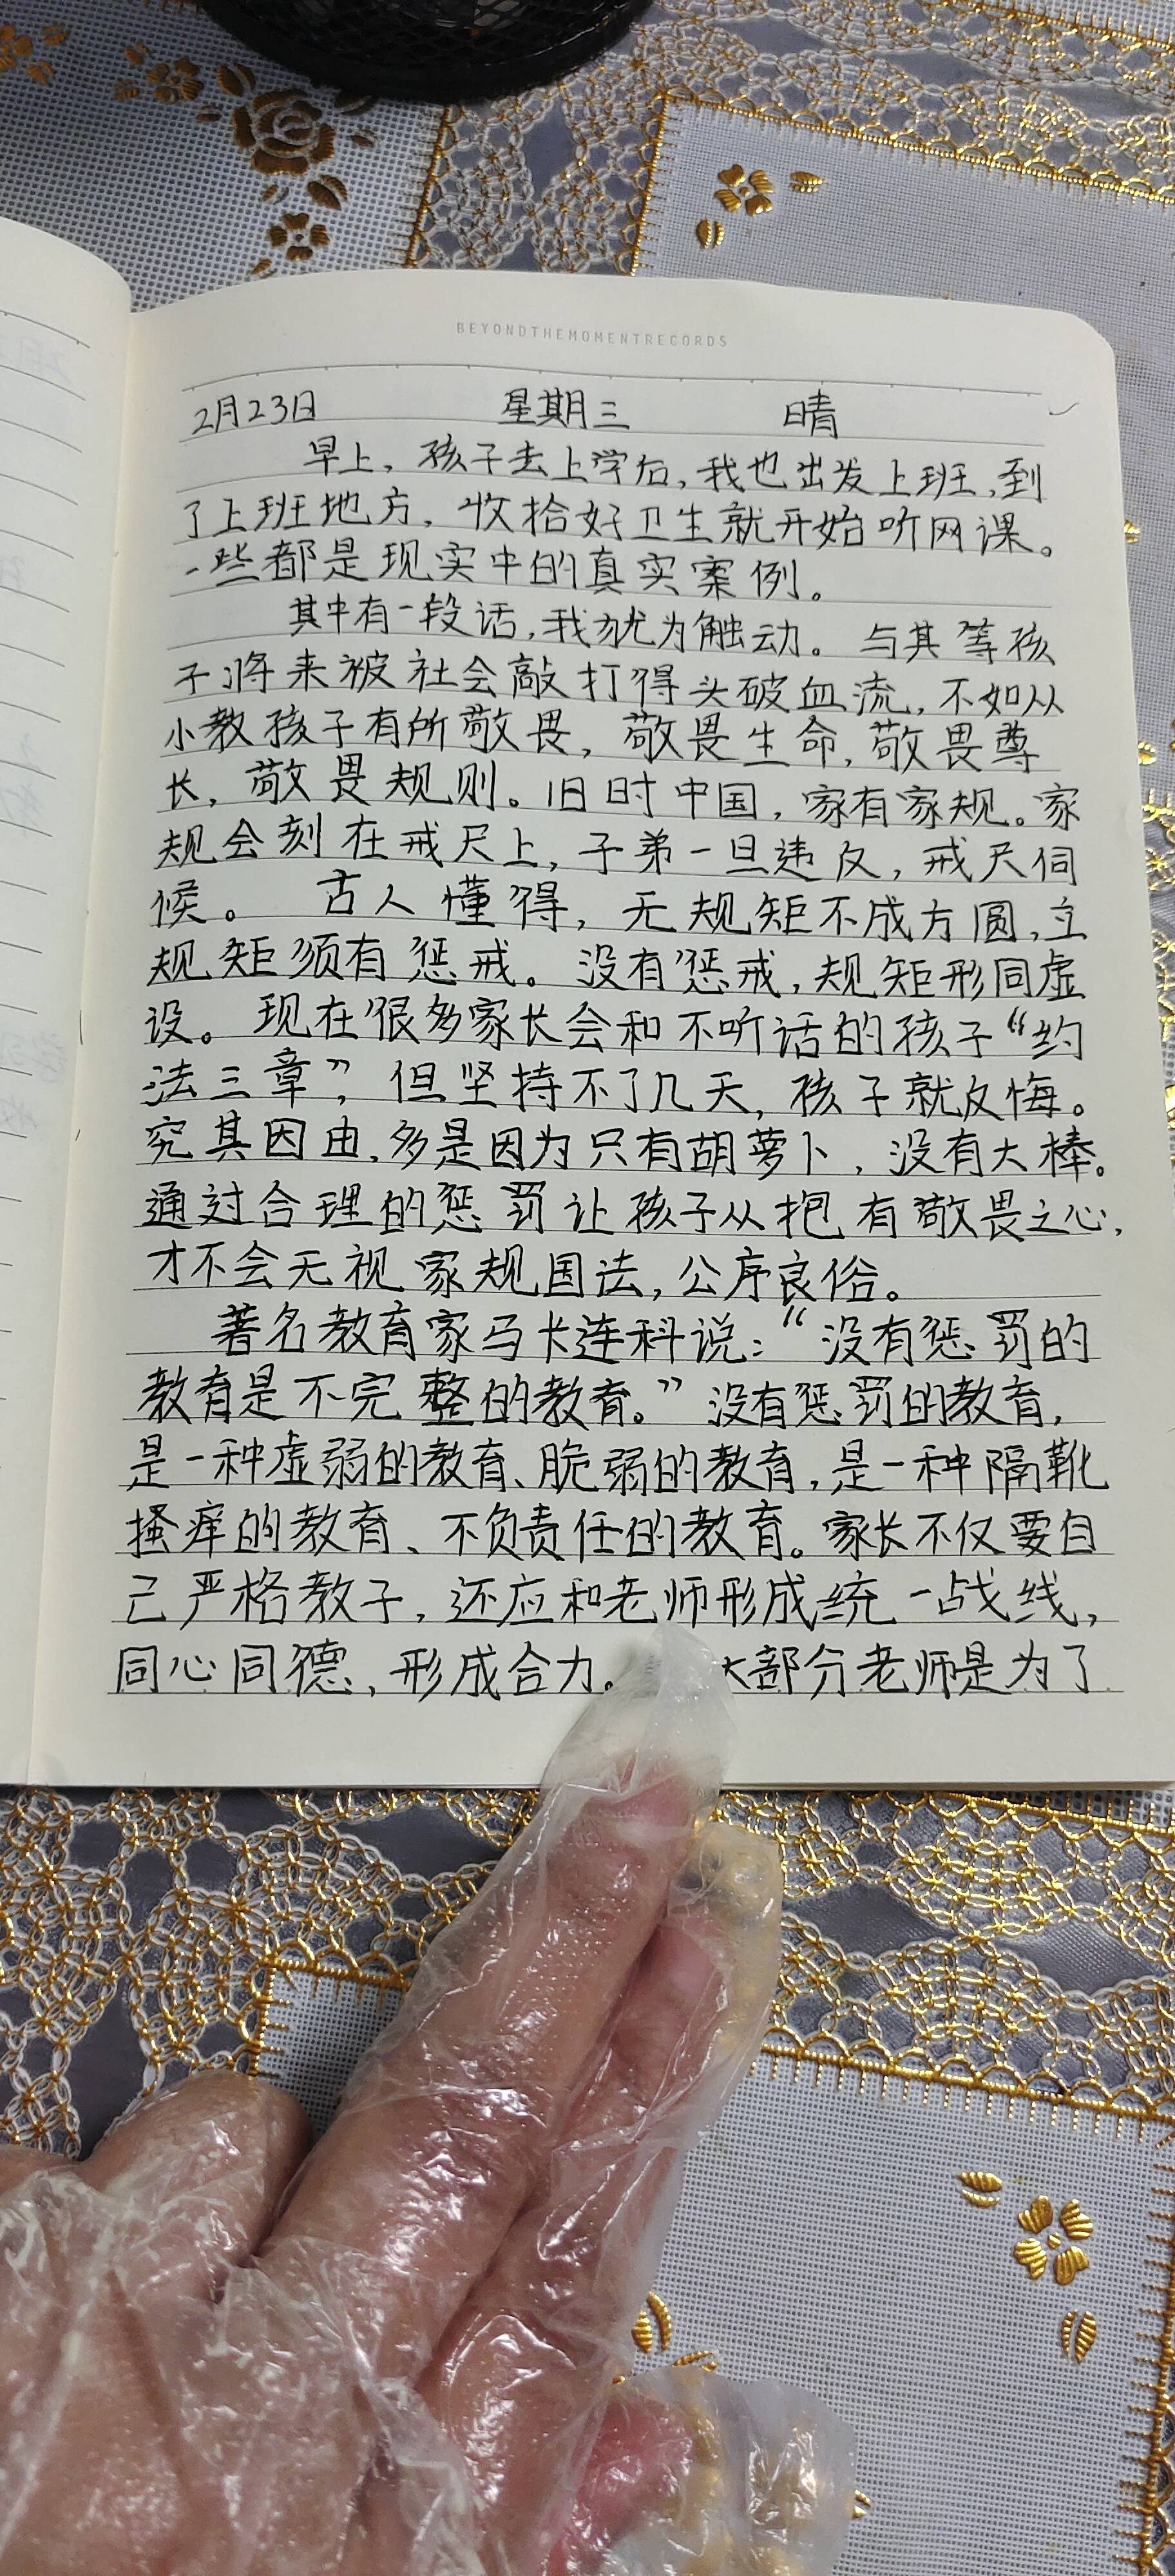 BEYONDTHEMOMENTRECORDS
2月23日 星期三 晴
早上，孩子去上学后，我也出发上班，到
了上班地方，收拾好卫生就开始听网课。
一些都是现实中的真实案例。
其中有一段话，我犹为触动。与其等孩
子将来被社会敲打得头破血流，不如从
小教孩子有所敬畏，敬畏生命，敬畏尊
长，敬畏规则。旧时中国，家有家规。家
规会刻在戒尺上，子弟一旦违反，戒尺伺
候。 古人懂得，无规矩不成方圆，立
规矩须有惩戒。没有惩戒，规矩形同虚
设。现在很多家长会和不听话的孩子“约
法三章”，但坚持不了几天，孩子就反悔。
究其因由，多是因为只有胡萝卜，没有大棒。
通过合理的惩罚让孩子从抱有敬畏之心，
才不会无视家规国法，公序良俗。
著名教育家马卡连科说：“没有惩罚的
教育是不完整的教育。”没有惩罚的教育，
是一种虚弱的教育、脆弱的教育，是一种隔靴
搔痒的教育、不负责任的教育。家长不仅要自
己严格教子，还应和老师形成统一战线，
同心同德，形成合力。 大部分老师是为了